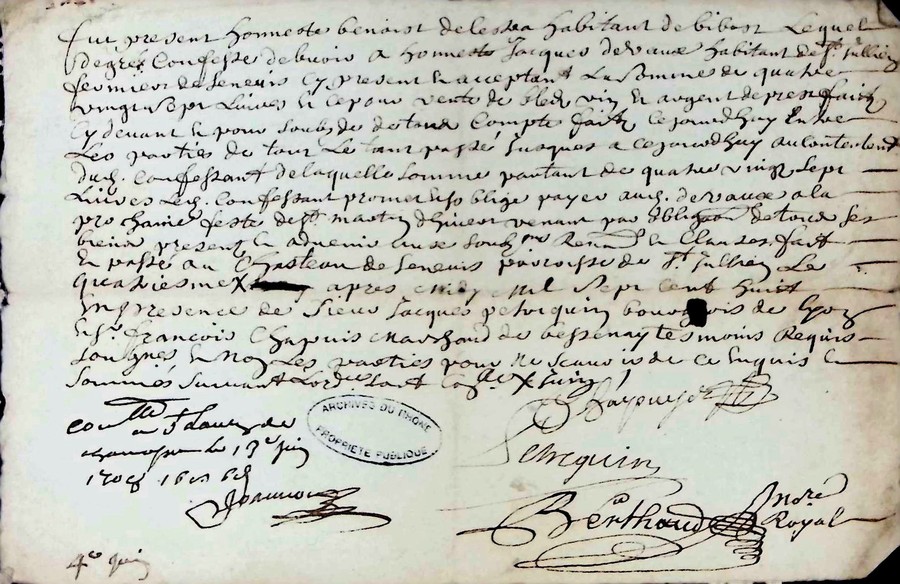 fut present honneste benoist delessea habitant de bibost Lequel
degré Confesse debvoir a honneste Jacques devaux habitant de St Jullien
fermier de Seneuis Cy present et acceptant La Somme de quatre
vingt sept Livres et ce pour vente de bled vin et argent de prest faitz
Cy devant et pour Soulde de tout Compte faitz Cejourdhuy Entre
Les parties de tout Le tant passé Jusques a Cejourdhuy au Contentement
dud. Confessant de laquelle Somme partant de quatre vingt Sept
Livres Led. Confessant promet et soblige payer aud. devaux a la
prochaine feste de St martin dhiver venant par obligaon de tous Ses
biens present et advenir Renaon et Clauses fait
et passé au Chasteau de Seneuis paroisse de St Jullien Le
quatriesme apres midy Mil Sept Cent huict
En presence de Sieur Jacques petrequin bourgeois de Lyon
et Sr francois Chapuis Marchand de bessenay tesmoins Requis
Soubsignés et Non Les parties pour Ne Scavoir de ce Enquis et
Sommés Suivant Lordce
Chapuys
Petrequin
Berthaud Nore Royal
Conllé
a St Laurent de
chamousset le 13e juin
1708
ARCHIVES DU RHONE
PROPRIÉTÉ PUBLIQUE
4e juin